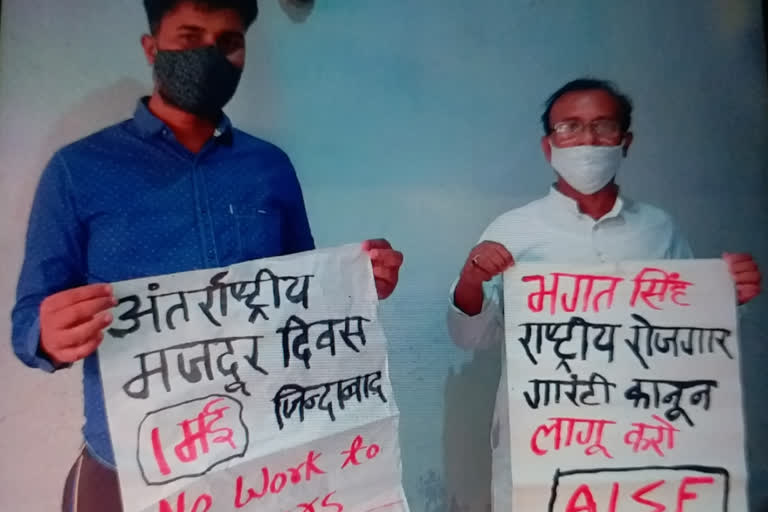 अंतर्राष्ट्रीय
मजदूर दिवस
1 मई जिन्दाबाद
No Work to
भगत सिंह
राष्ट्रीय रोजगार
गारंटी कानून
लागू करो
AISF